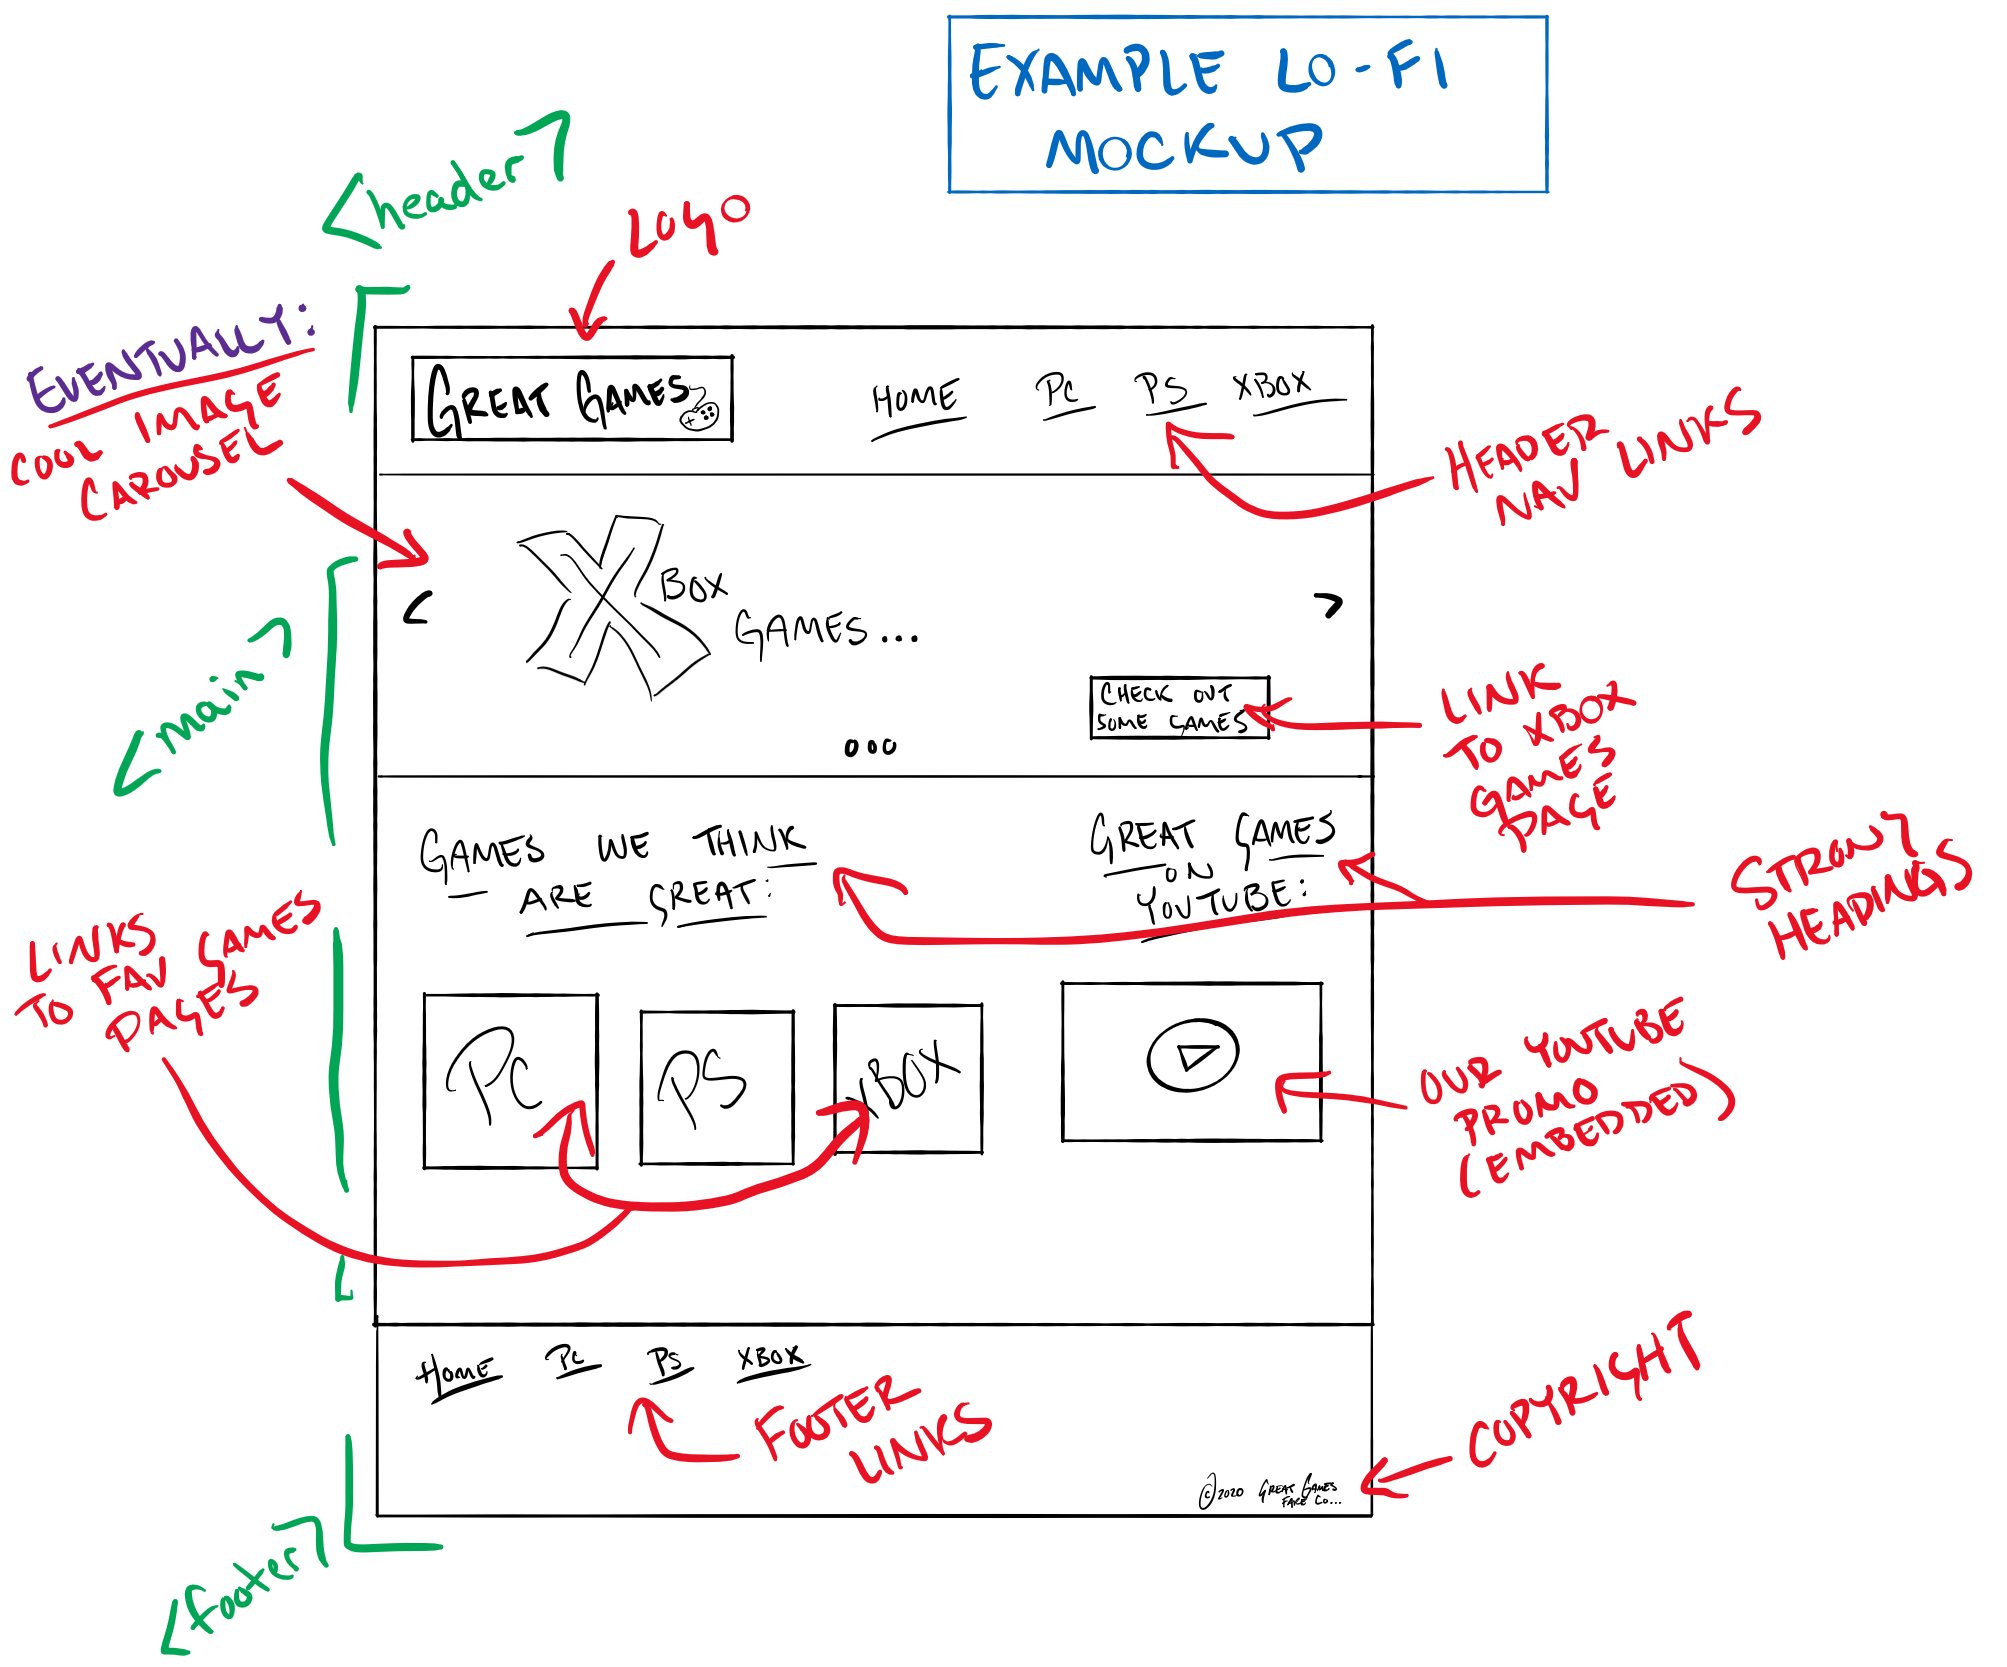 EXAMPLE LO-FI
MOCKUP
<header>
LOGO
EVENTUALLY:
COOL IMAGE
CAROUSEL
GREAT GAMES
HOME PC PS XBOX
HEADER
NAV LINKS
<main>
< X BOX >
GAMES...
CHECK OUT
SOME GAMES
LINK
TO XBOX
GAMES
PAGE
GAMES WE THINK
ARE GREAT:
GREAT GAMES
ON
YOUTUBE:
STRONG
HEADINGS
LINKS
TO FAV GAMES
PAGES
PC PS XBOX
OUR YOUTUBE
PROMO
(EMBEDDED)
HOME PC PS XBOX
FOOTER
LINKS
COPYRIGHT
© 2020 GREAT GAMES
FAKE CO...
<footer>